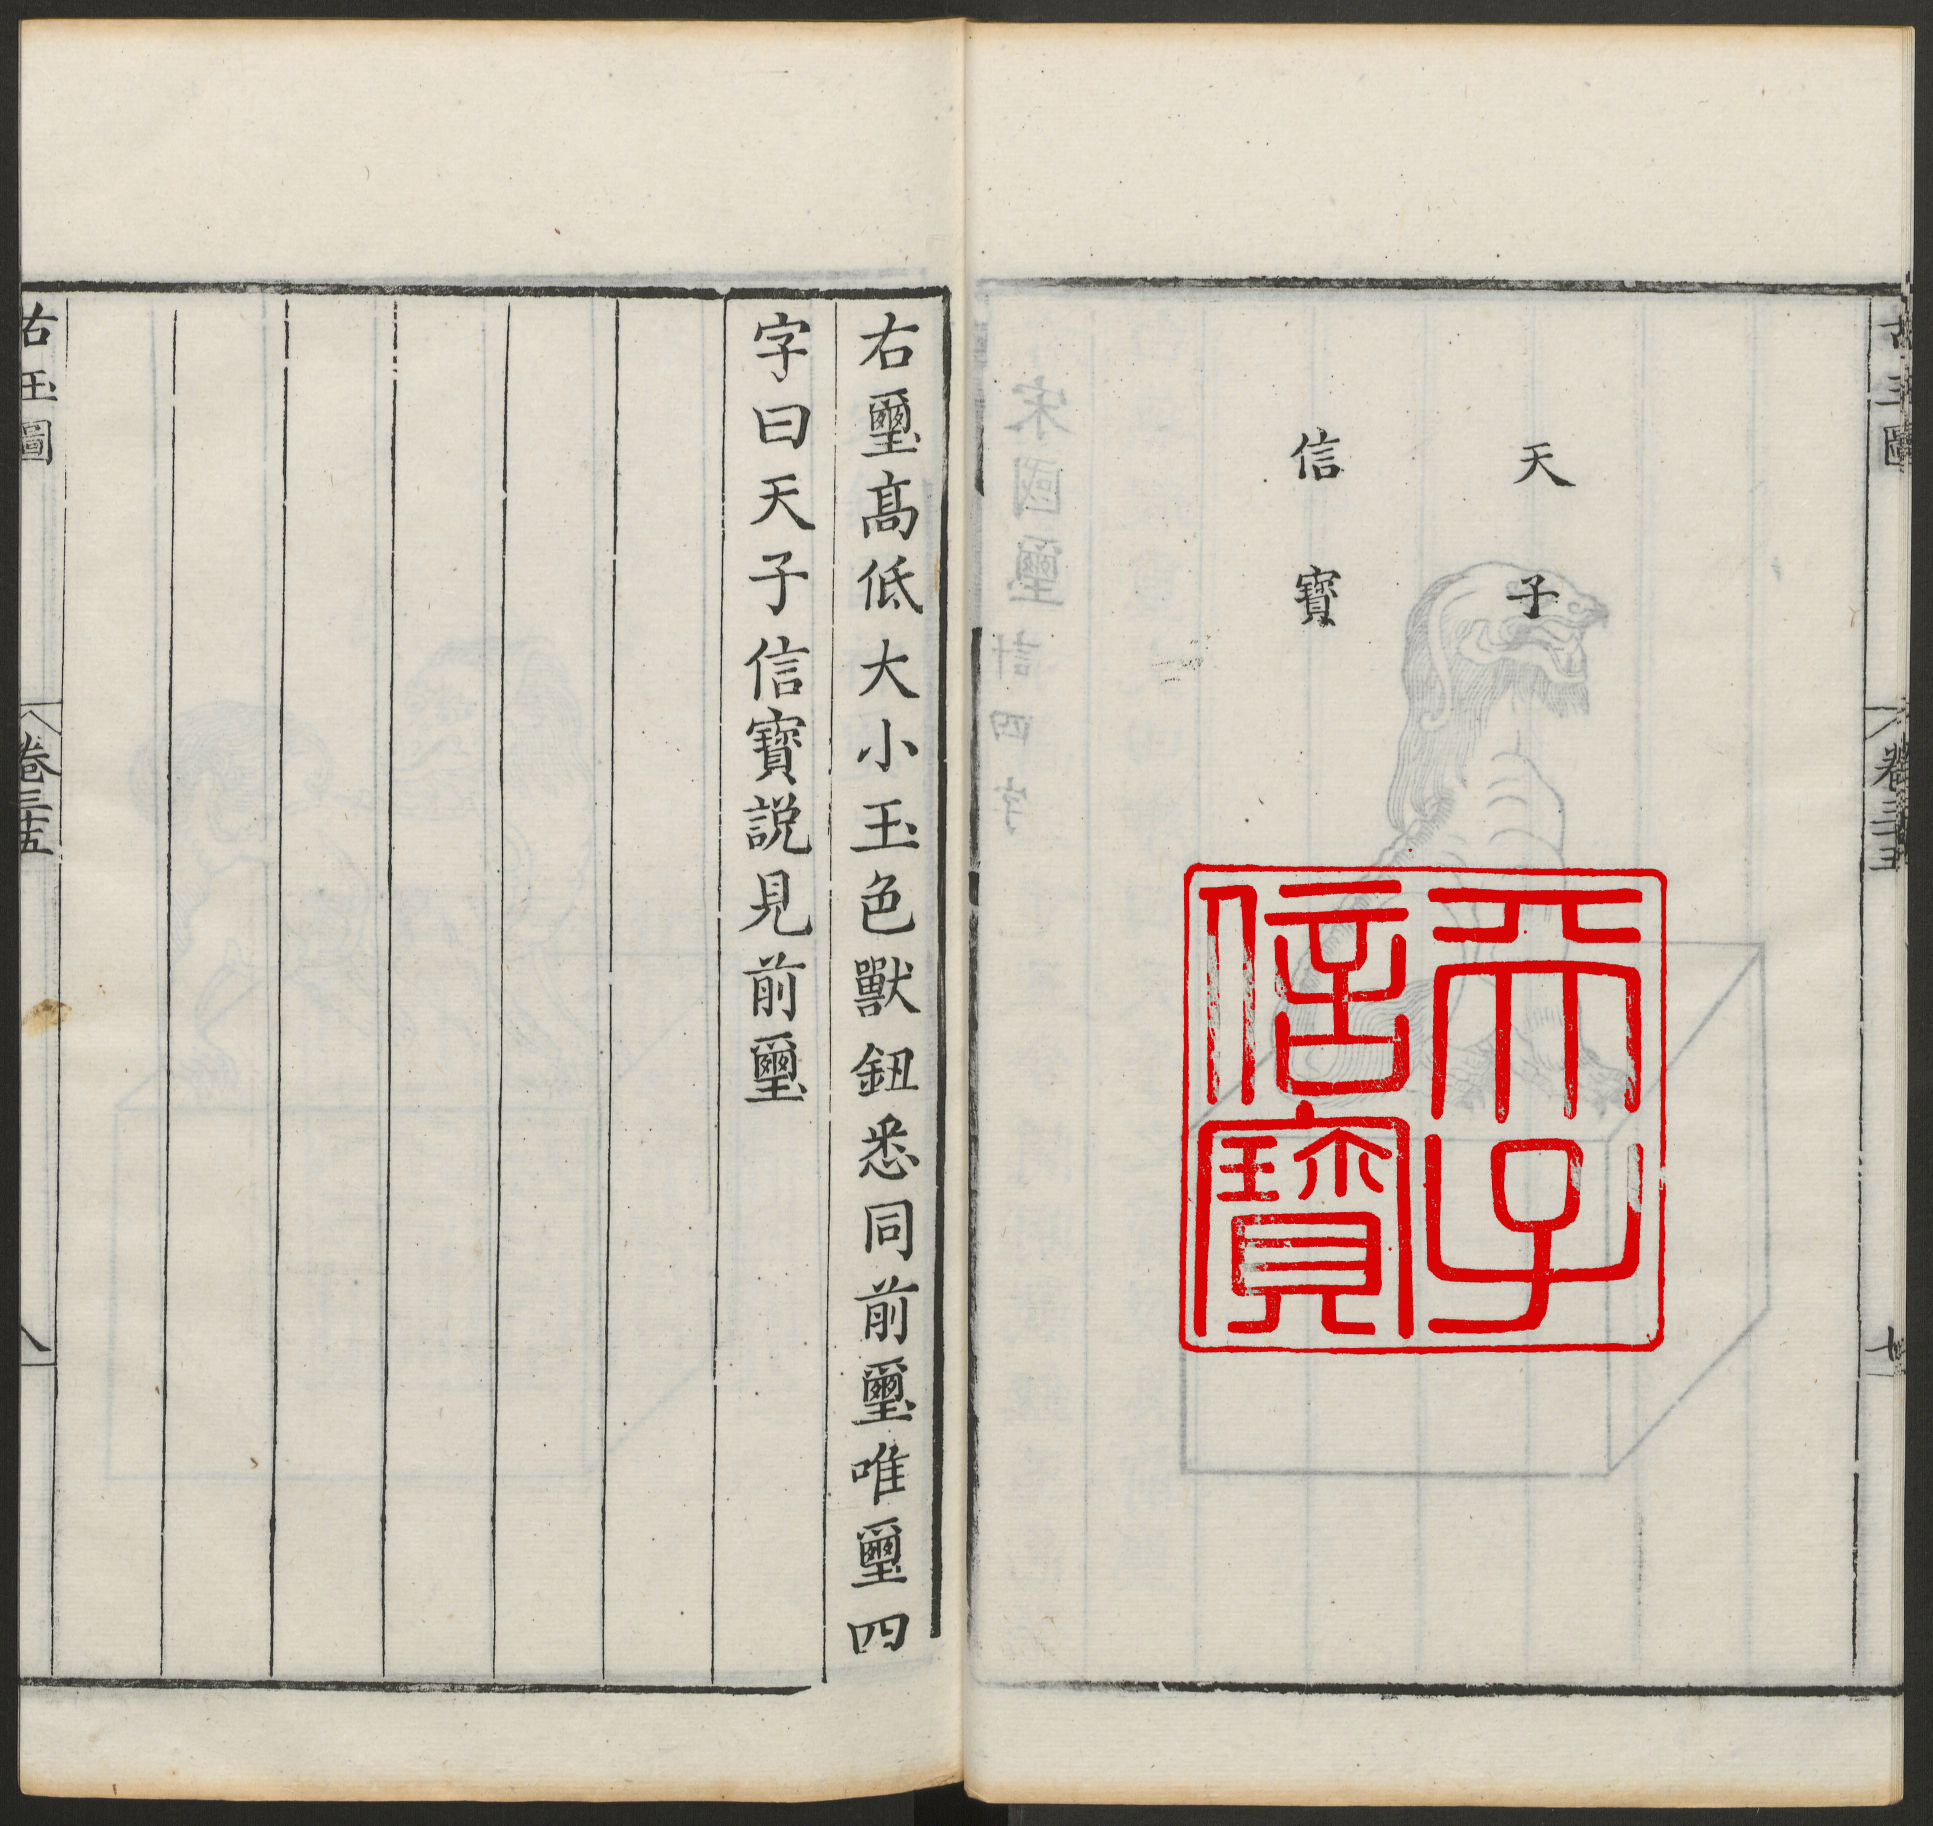 天子
信寶
天子
信寶
右璽高低大小玉色獸鈕悉同前璽唯璽四
字曰天子信寶説見前璽
古玉圖
卷三十五
八